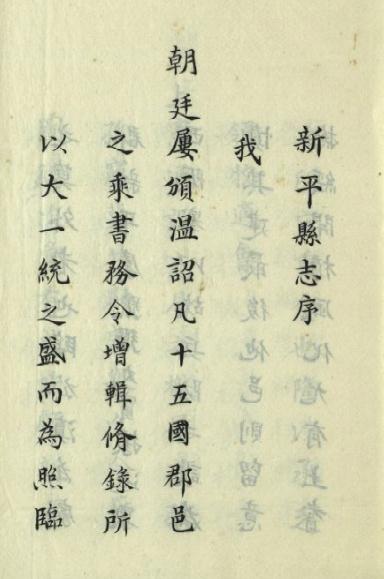 新平縣志序
我
朝廷屢頒溫詔凡十五國郡邑
之乘書務令增輯脩錄所
以大一統之盛而為照臨